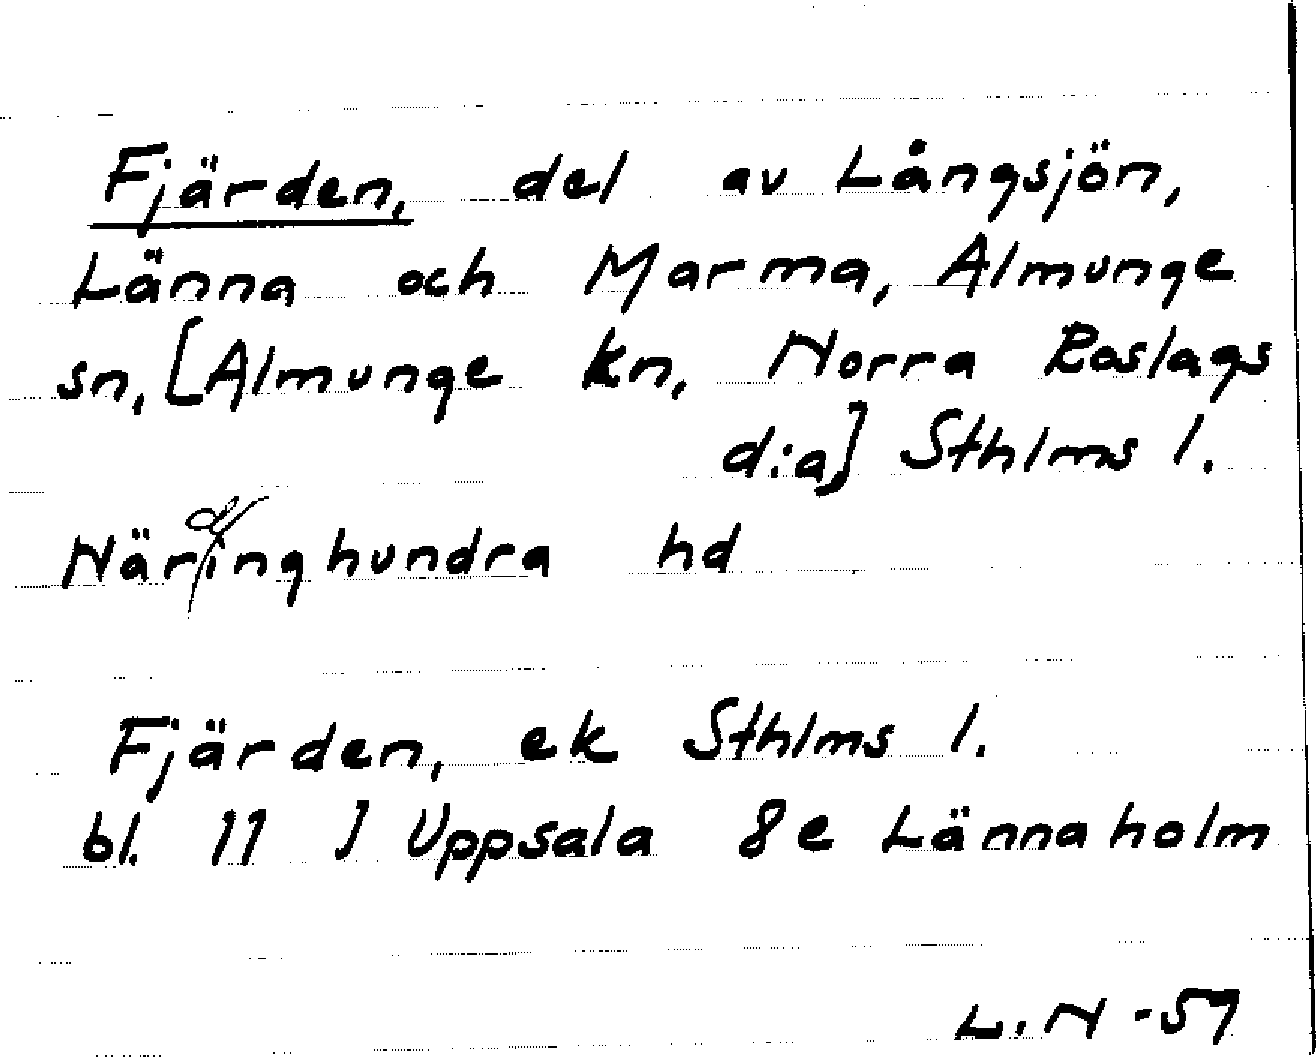 Fjärden, del av Långsjön,
Länna och Marma, Almunge
sn, [Almunge kn, Norra Roslags
d:a] Sthlms l.
Näringhundra hd
Fjärden, ek Sthlms l.
bl. 11 J Uppsala 8e Lännaholm
L.N -59